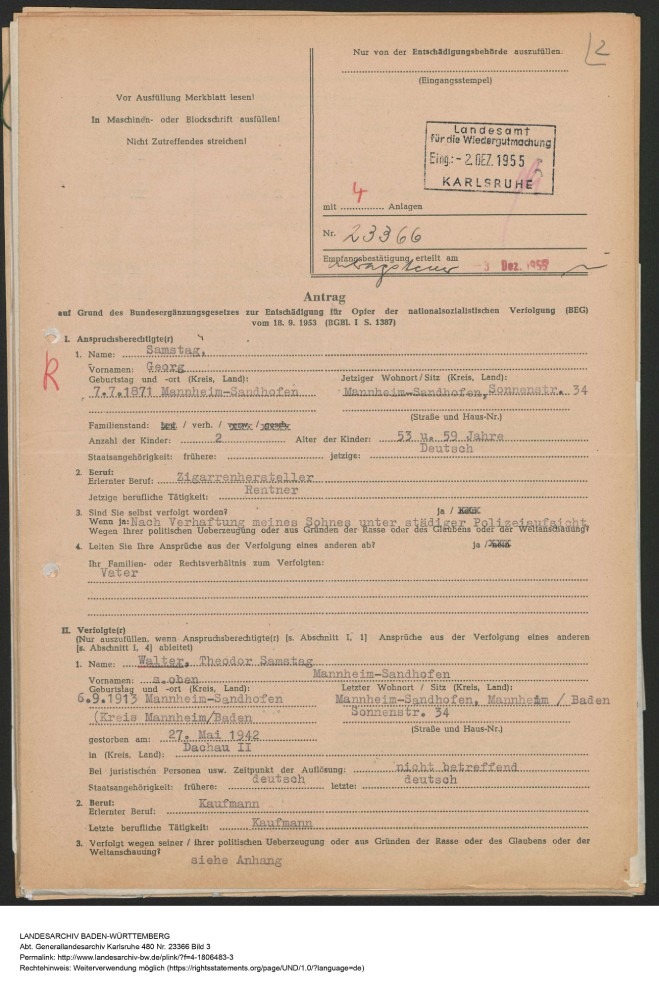 Nur von der Entschädigungsbehörde auszufüllen:
2
(Eingangsstempel)
Vor Ausfüllung Merkblatt lesen!
In Maschinen- oder Blockschrift ausfüllen!
Nicht Zutreffendes streichen!
Landesamt
für die Wiedergutmachung
Eing.: - 2. DEZ. 1955
KARLSRUHE
mit 4 Anlagen
Nr. 23366
Empfangsbestätigung erteilt am
3 Dez. 1955
Antrag
auf Grund des Bundesergänzungsgesetzes zur Entschädigung für Opfer der nationalsozialistischen Verfolgung (BEG)
vom 18. 9. 1953 (BGBl. I S. 1387)
R
I. Anspruchsberechtigte(r)
1. Name: Samstag,
Vornamen: Georg
Geburtstag und -ort (Kreis, Land): Jetziger Wohnort / Sitz (Kreis, Land):
7.7.1871 Mannheim-Sandhofen Mannheim-Sandhofen, Sonnenstr. 34
(Straße und Haus-Nr.)
Familienstand: led. / verh. / verw. / gesch.
Anzahl der Kinder: 2 Alter der Kinder: 53 u. 59 Jahre
Staatsangehörigkeit: frühere: jetzige: Deutsch
2. Beruf:
Erlernter Beruf: Zigarrenhersteller
Jetzige berufliche Tätigkeit: Rentner
3. Sind Sie selbst verfolgt worden? ja / nein
Wenn ja: Nach Verhaftung meines Sohnes unter städiger Polizeiaufsicht
Wegen Ihrer politischen Ueberzeugung oder aus Gründen der Rasse oder des Glaubens oder der Weltanschauung?
4. Leiten Sie Ihre Ansprüche aus der Verfolgung eines anderen ab? ja / nein
Ihr Familien- oder Rechtsverhältnis zum Verfolgten:
Vater
II. Verfolgte(r)
(Nur auszufüllen, wenn Anspruchsberechtigte(r) [s. Abschnitt I, 1] Ansprüche aus der Verfolgung eines anderen
[s. Abschnitt I, 4] ableitet)
1. Name: Walter, Theodor Samstag
Vornamen: s.oben Mannheim-Sandhofen
Geburtstag und -ort (Kreis, Land): Letzter Wohnort / Sitz (Kreis, Land):
6.9.1913 Mannheim-Sandhofen Mannheim-Sandhofen, Mannheim / Baden
(Kreis Mannheim/Baden Sonnenstr. 34
(Straße und Haus-Nr.)
gestorben am: 27. Mai 1942
in (Kreis, Land): Dachau II
Bei juristischen Personen usw. Zeitpunkt der Auflösung: nicht betreffend
Staatsangehörigkeit: frühere: deutsch letzte: deutsch
2. Beruf:
Erlernter Beruf: Kaufmann
Letzte berufliche Tätigkeit: Kaufmann
3. Verfolgt wegen seiner / ihrer politischen Ueberzeugung oder aus Gründen der Rasse oder des Glaubens oder der
Weltanschauung?
siehe Anhang
LANDESARCHIV BADEN-WÜRTTEMBERG
Abt. Generallandesarchiv Karlsruhe 480 Nr. 23366 Bild 3
Permalink: http://www.landesarchiv-bw.de/plink/?f=4-1806483-3
Rechtehinweis: Weiterverwendung möglich (https://rightsstatements.org/page/UND/1.0/?language=de)